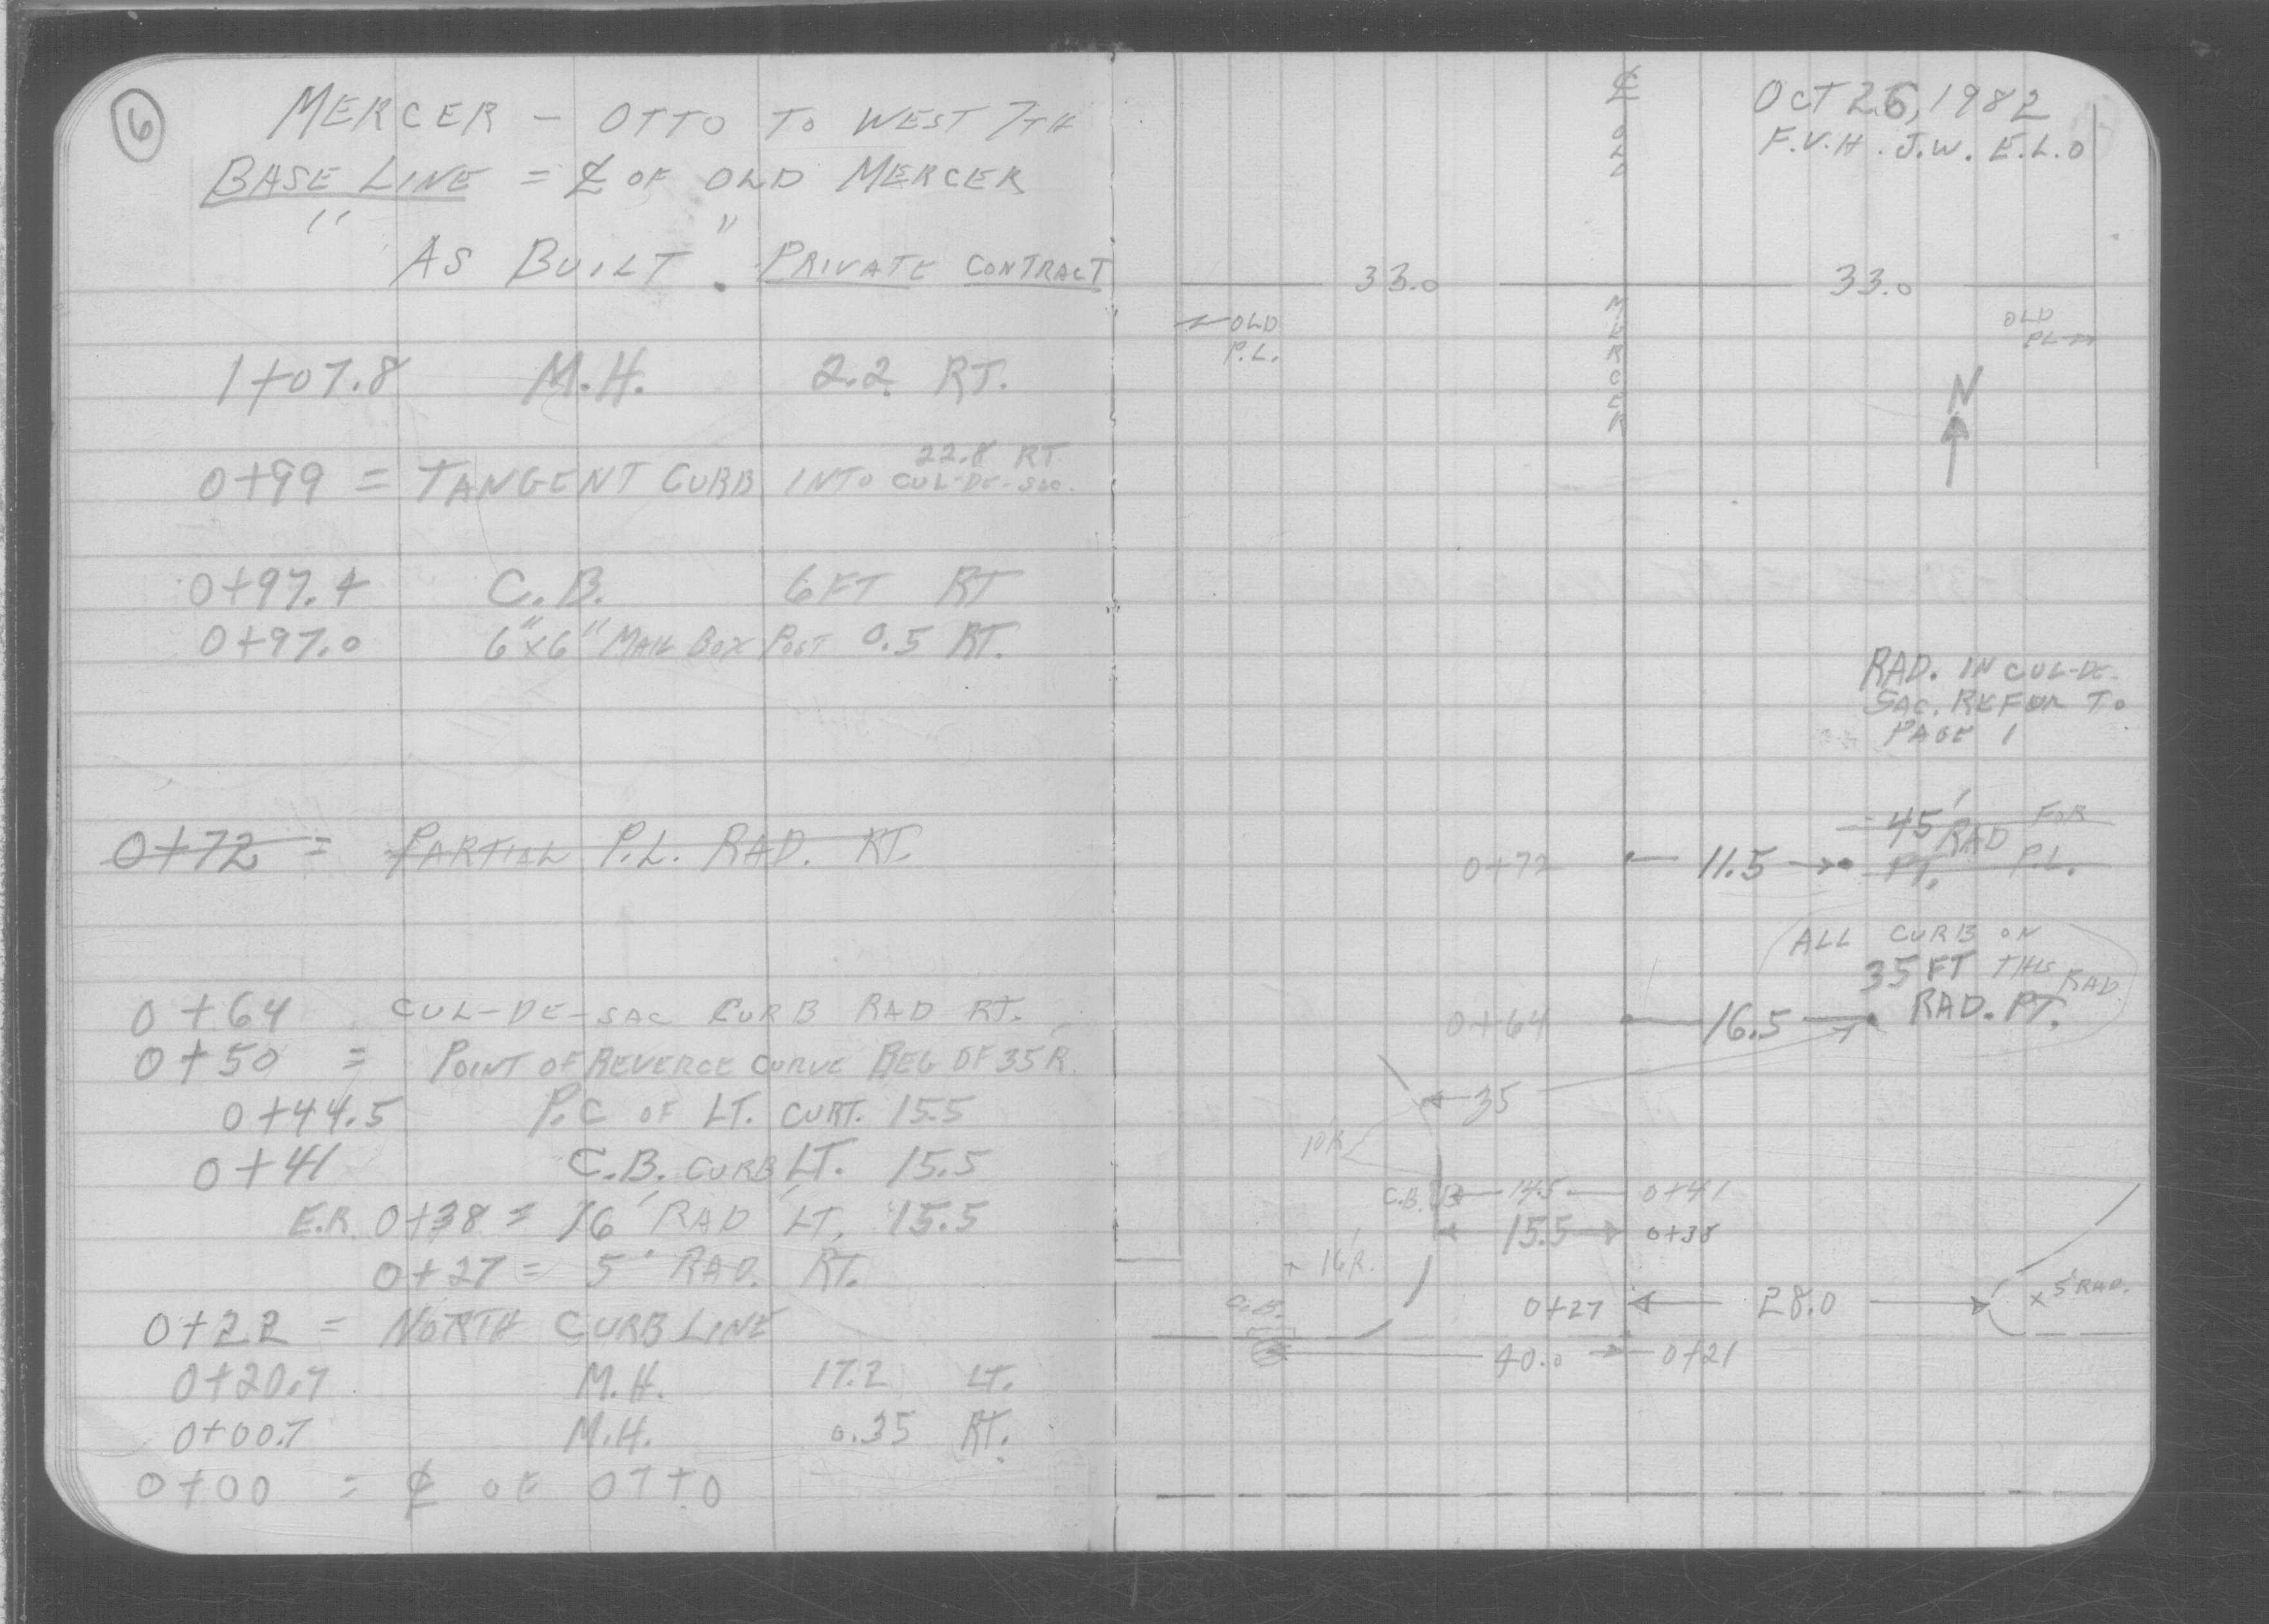 6
MERCER - OTTO TO WEST 7TH
BASE LINE = ℄ OF OLD MERCER
" AS BUILT " PRIVATE CONTRACT
1+07.8 M.H. 2.2 RT.
22.8 RT
0+99 = TANGENT CURB INTO CUL-DE-SAC.
0+97.4 C.B. 6 FT RT
0+97.0 6"x6" MAIL BOX POST 0.5 RT.
0+72 = PARTIAL P.L. RAD. RT.
0+64 CUL-DE-SAC CURB RAD RT.
0+50 = POINT OF REVERCE CURVE BEG OF 35'R.
0+44.5 P.C OF LT. CURT. 15.5
0+41 C.B. CURB LT. 15.5
E.R. 0+38 = 16' RAD LT. 15.5
0+27 = 5' RAD. RT.
0+22 = NORTH CURB LINE
0+20.7 M.H. 17.2 LT.
0+00.7 M.H. 0.35 RT.
0+00 = ℄ OF OTTO
℄ OLD MERCER
OCT 26, 1982
F.V.H. J.W. E.L.O
33.0 33.0
OLD P.L.
OLD PL
N
RAD. IN CUL-DE-
SAC. REFOR TO
PAGE 1
0+72 11.5 45' RAD FOR
PT. P.L.
ALL CURB ON
35 FT THIS RAD.
0+64 16.5 RAD. PT.
35
10'R
C.B. 14.5 0+41
15.5 0+38
16'R.
C.B. 0+27 28.0 5' RAD.
40.0 0+21